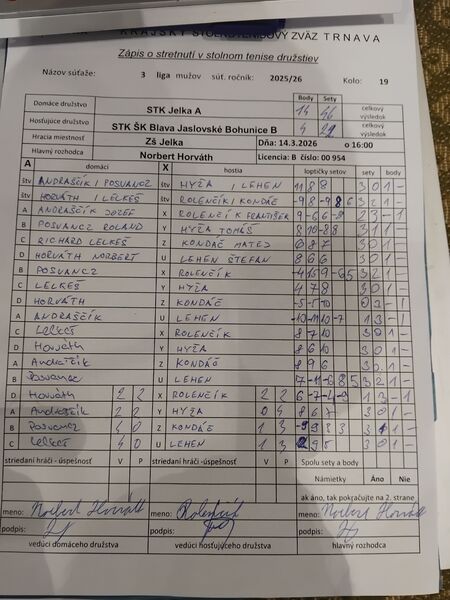 KRAJSKÝ STOLNOTENISOVÝ ZVÄZ TRNAVA
Zápis o stretnutí v stolnom tenise družstiev
Názov súťaže: 3 liga mužov súť. ročník: 2025/26 Kolo: 19
Body Sety
Domáce družstvo STK Jelka A 14 46 celkový výsledok
Hosťujúce družstvo STK ŠK Blava Jaslovské Bohunice B 4 22 celkový výsledok
Hracia miestnosť ZŠ Jelka Dňa: 14.3.2026 o 16:00
Hlavný rozhodca Norbert Horváth Licencia: B číslo: 00 954
A domáci X hostia loptičky setov sety body
štv ANDRAŠČÍK / POSVANCZ štv HYŽA / LEHEN 11 8 8 3 0 1 -
štv HORVÁTH / LELKEŠ štv ROLENČÍK / KONDÁČ -9 8 -9 8 6 3 2 1 -
A ANDRAŠČÍK JOZEF X ROLENČÍK FRANTIŠEK
B POSVANCZ ROLAND Y HYŽA TOMÁŠ 3 1 1 -
C RICHARD LELKEŠ Z KONDÁČ MATEJ 6 8 7 3 0 1 -
D HORVÁTH NORBERT U LEHEN ŠTEFAN 8 6 6 3 0 1 -
B POSVANCZ X ROLENČÍK 3 2 1 -
C LELKEŠ Y HYŽA 4 7 8 3 0 1 -
D HORVÁTH Z KONDÁČ -5 -5 -10 0 3 - 1
A ANDRAŠČÍK U LEHEN -10 -11 10 -7 1 3 - 1
C LELKEŠ X ROLENČÍK 8 7 10 3 0 1 -
D Horváth Y HYŽA 8 6 10 3 0 1 -
A Andraščík Z KONDÁČ 8 9 6 3 0 1 -
B Posvancz U LEHEN 3 2 1 -
D Horváth 2 2 X ROLENČÍK 2 2 6 -7 -4 -9 1 3 - 1
A Andraščík 2 2 Y HYŽA 0 4 8 6 7 3 0 1 -
B Posvancz 4 0 Z KONDÁČ 1 3 3 1 1 -
C Lelkeš 4 0 U LEHEN 1 3 3 0 1 -
striedaní hráči - úspešnosť V P striedaní hráči - úspešnosť V P Spolu sety a body
Námietky Áno Nie
ak áno, tak pokračujte na 2. strane
meno: Norbert Horváth meno: Rolenčík meno: Norbert Horváth
podpis: podpis: podpis:
vedúci domáceho družstva vedúci hosťujúceho družstva hlavný rozhodca